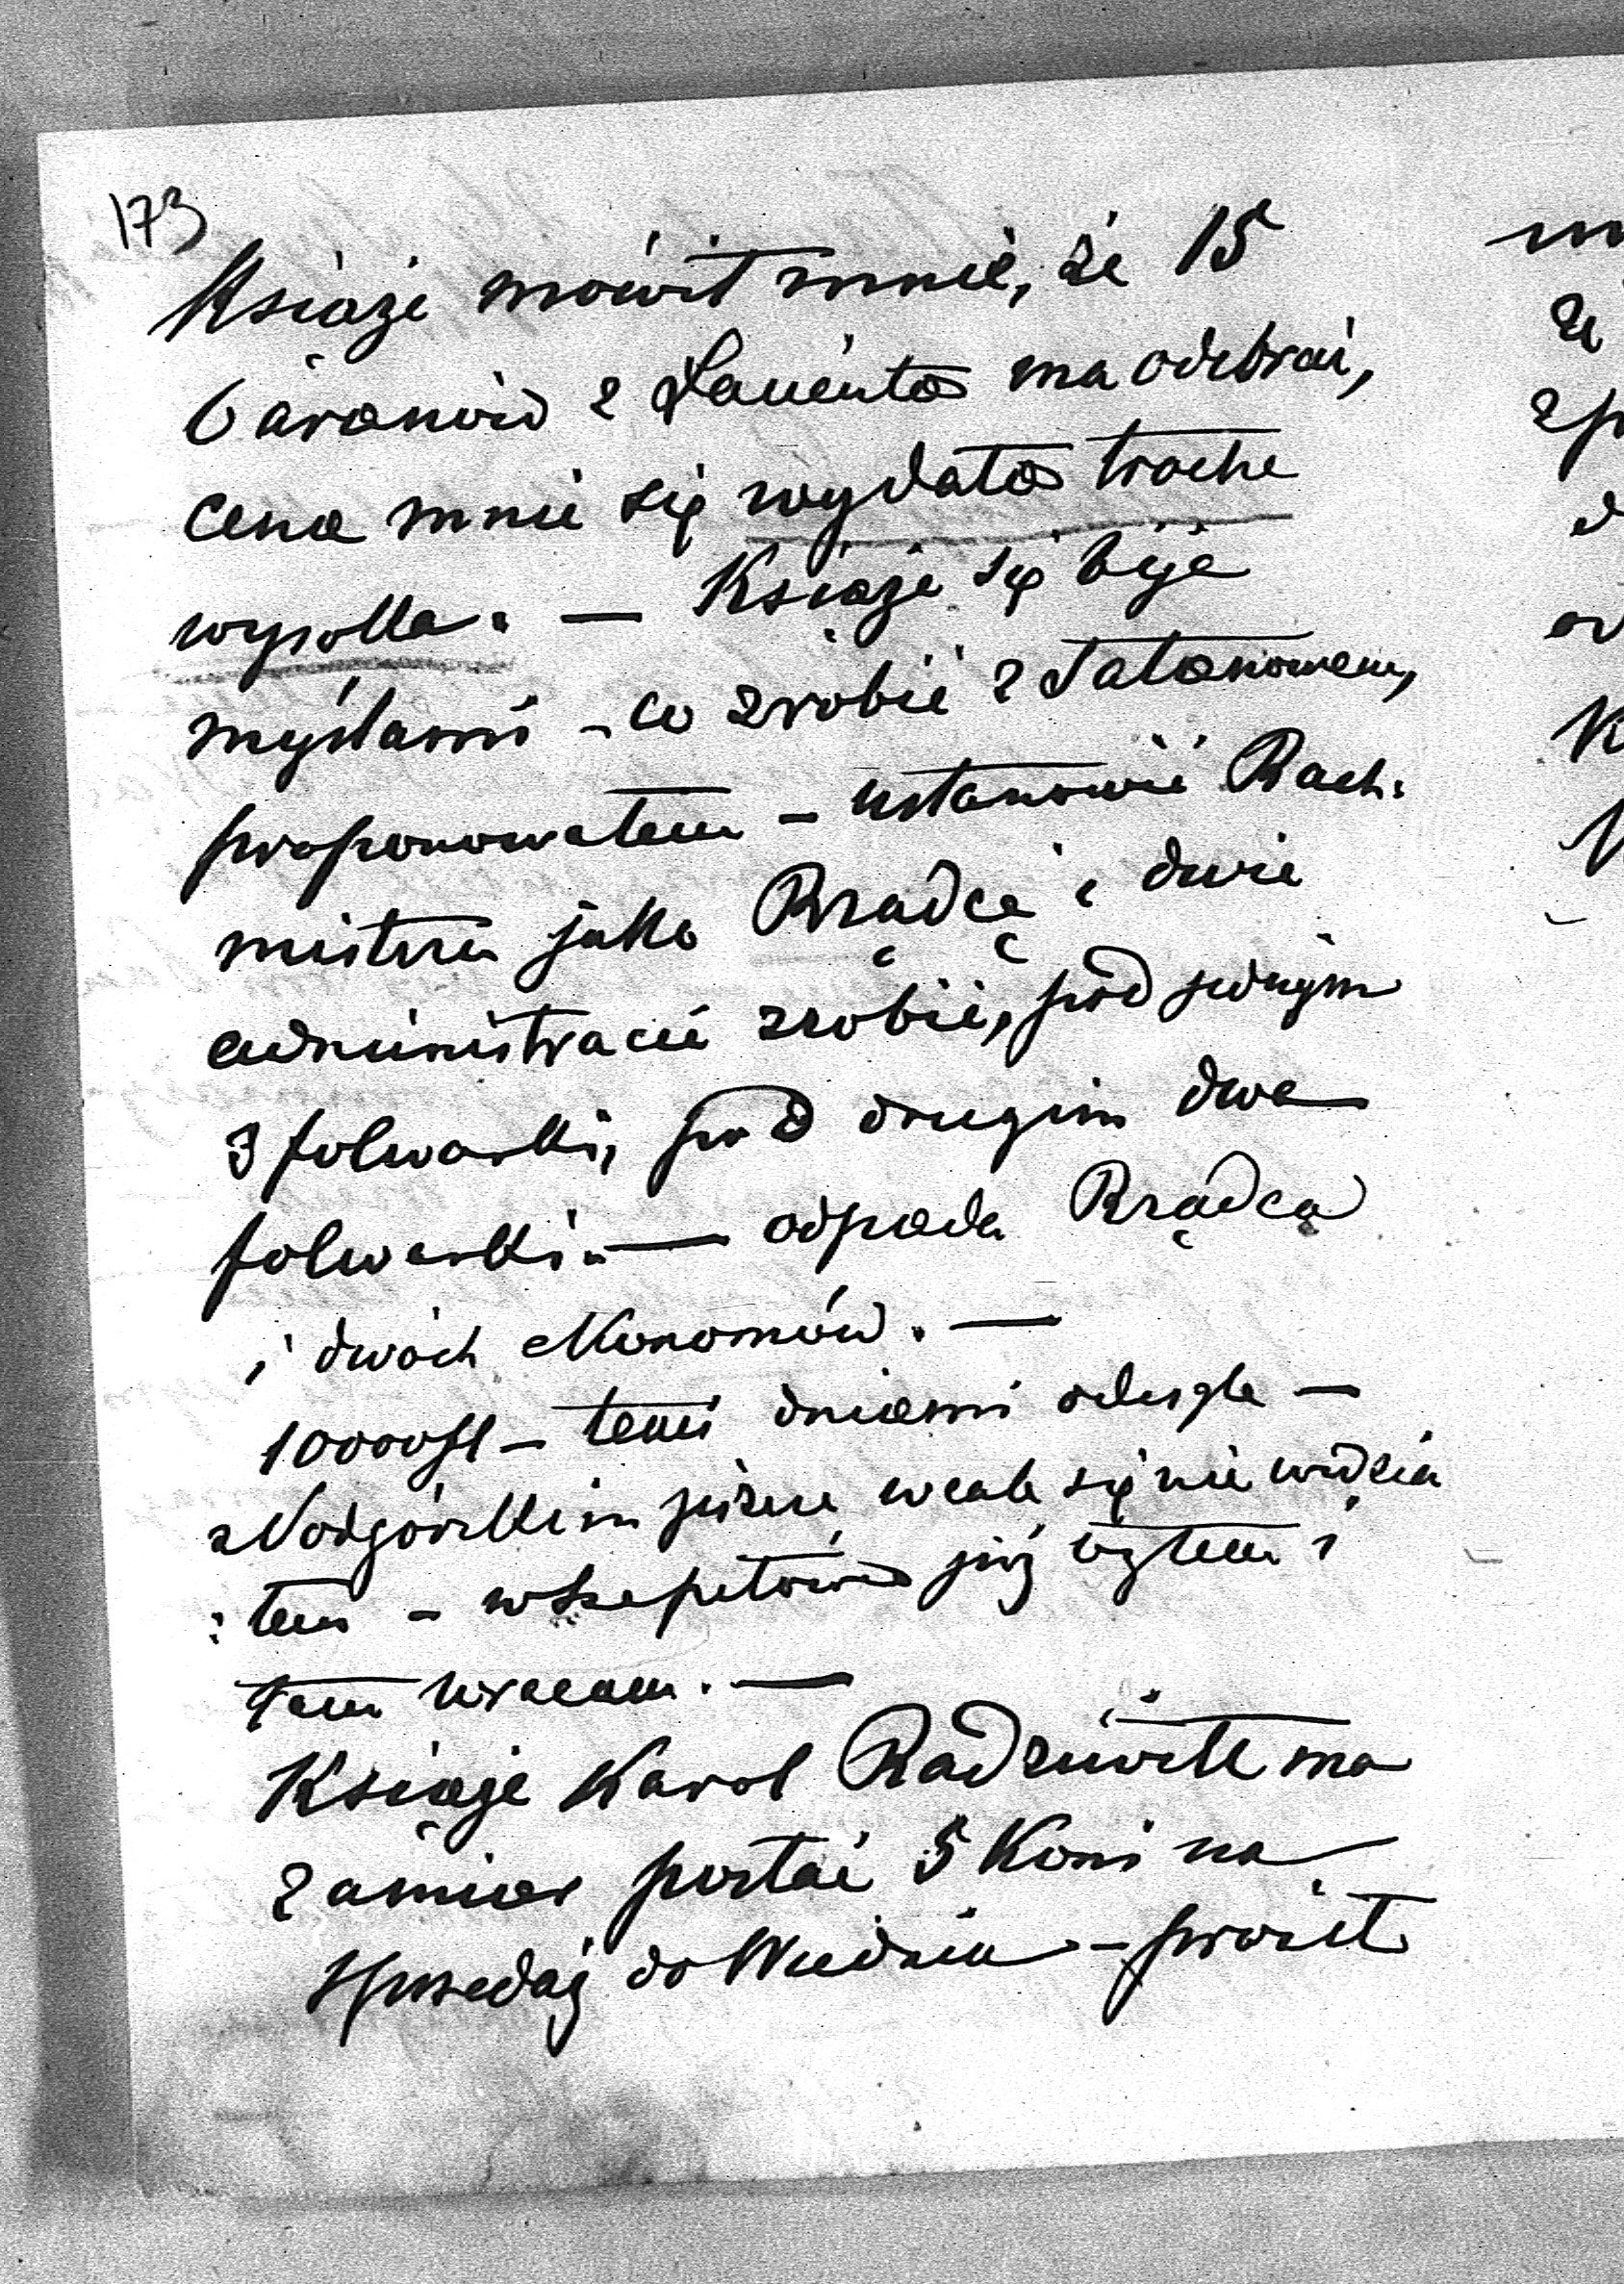 173
Książe mówił mnie, że 15
baranów z Łańcuta ma odebrać,
cena mnie się wydała trochę
wysoka. — Książe się bije
myślami – co zrobić z
proponowałem – ustanowić Rach:
mistrza jako Rządcę i dwie
administracie zrobić, pod jednym
3 folwarki, pod drugim dwa
folwarki. — odpada Rządca
i dwóch ekonomów. —
10000 fl – temi dniami odeszle —
z Podgórskim jeszcze wcale się nie widzia
:łem – w Szepetówce już byłem i
tam wracam. —
Książe Karol Radziwiłł ma
zamiar posłać 5 Koni na
sprzedaj do Wiednia – prosił